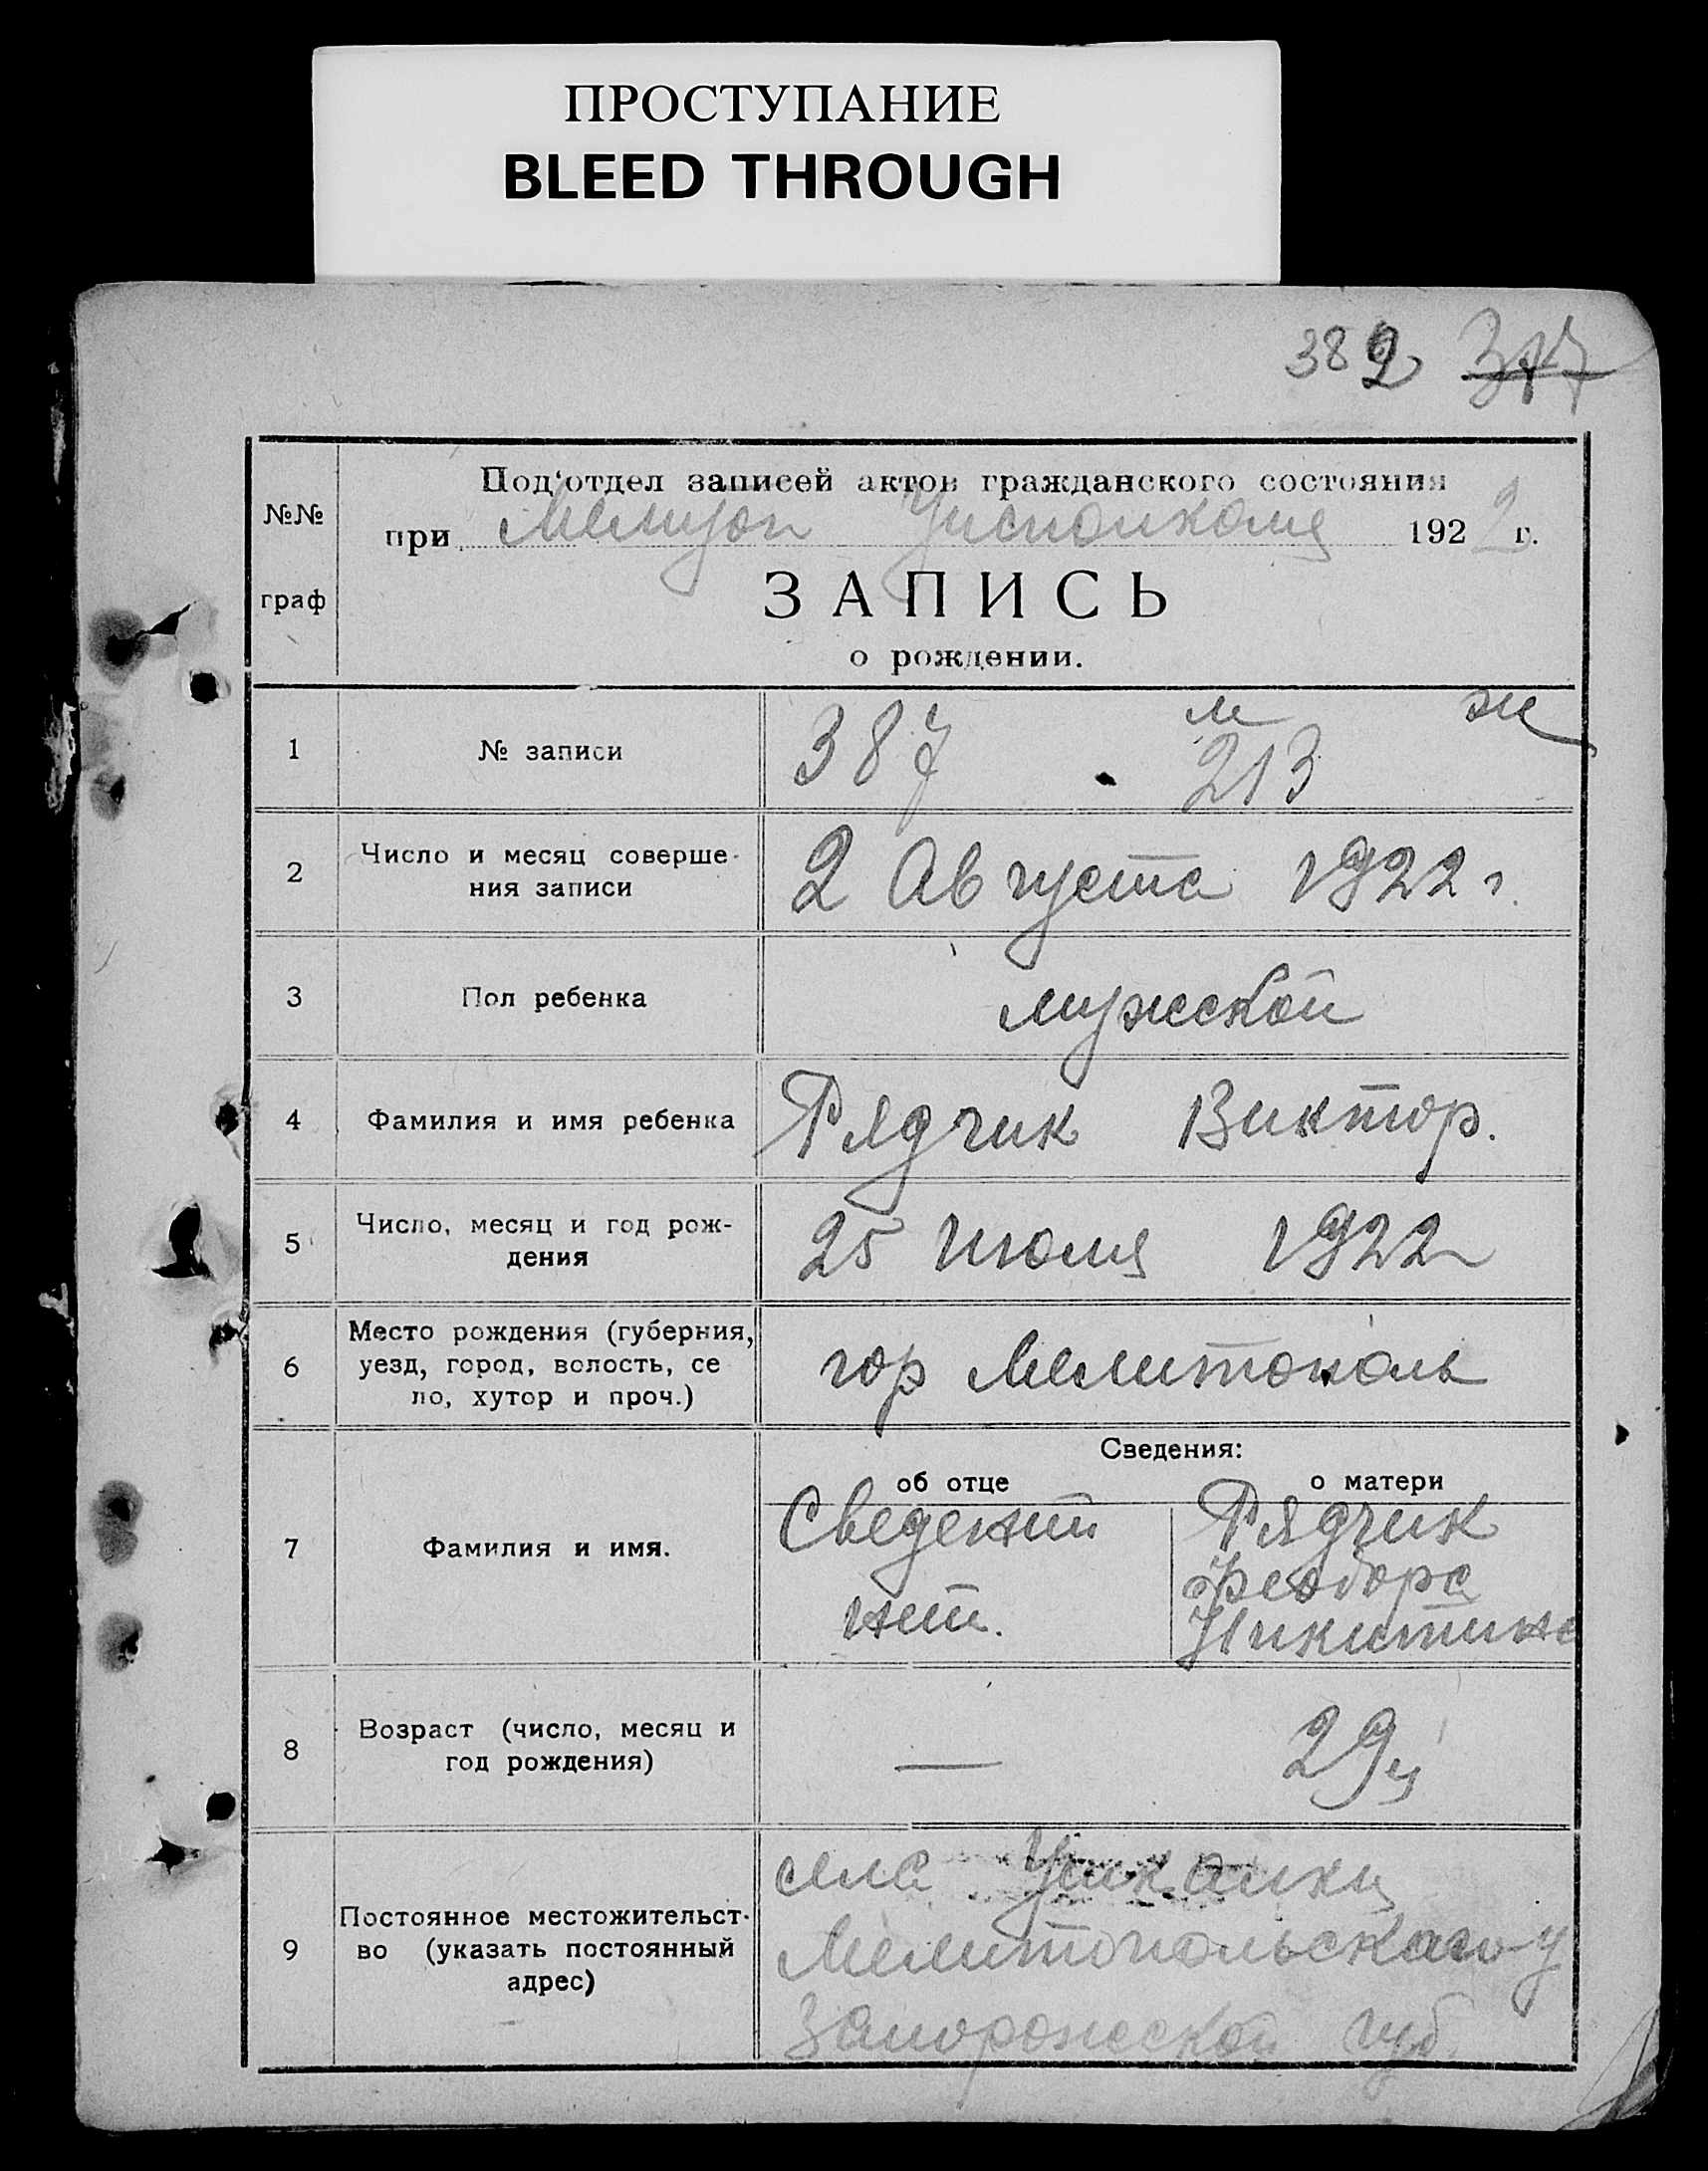 ПРОСТУПАНИЕ
BLEED THROUGH
382 377
Под‘отдел записей актов гражданского состояния
№№
при Мелитоп Уисполкома 1922 г.
граф
ЗАПИСЬ
о рождении.
м ж
1 № записи 387 213
2 Число и месяц соверше-
ния записи 2 Августа 1922 г.
3 Пол ребенка мужской
4 Фамилия и имя ребенка Рядчик Виктор.
5 Число, месяц и год рож-
дения 25 Июля 1922
6 Место рождения (губерния,
уезд, город, волость, се
ло, хутор и проч.) гор Мелитополь
Сведения:
об отце о матери
7 Фамилия и имя. Сведений Рядчик
нет. Феодора
Никитина
8 Возраст (число, месяц и
год рождения) — 29
9 Постоянное местожительст-
во (указать постоянный
адрес)
села
Мелитопольскаго у
Запорожской губ.